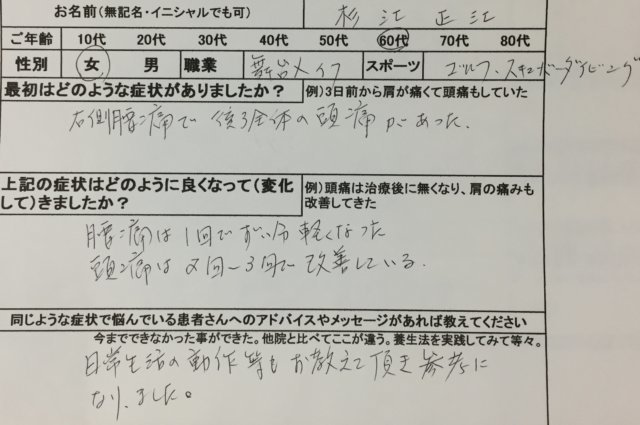 お名前(無記名・イニシャルでも可) 杉江 正江
ご年齢 10代 20代 30代 40代 50代 60代 70代 80代
性別 女 男 職業 舞台メイク スポーツ ゴルフ、スキューバーダイビング
最初はどのような症状がありましたか? 例)3日前から肩が痛くて頭痛もしていた
右側腰痛で後ろ全体の頭痛があった.
上記の症状はどのように良くなって(変化 例)頭痛は治療後に無くなり、肩の痛みも
して)きましたか? 改善してきた
腰痛は1回でずい分軽くなった
頭痛は2回〜3回で改善している.
同じような症状で悩んでいる患者さんへのアドバイスやメッセージがあれば教えてください
今までできなかった事ができた。他院と比べてここが違う。養生法を実践してみて等々。
日常生活の動作等もお教えて頂き参考に
なりました。